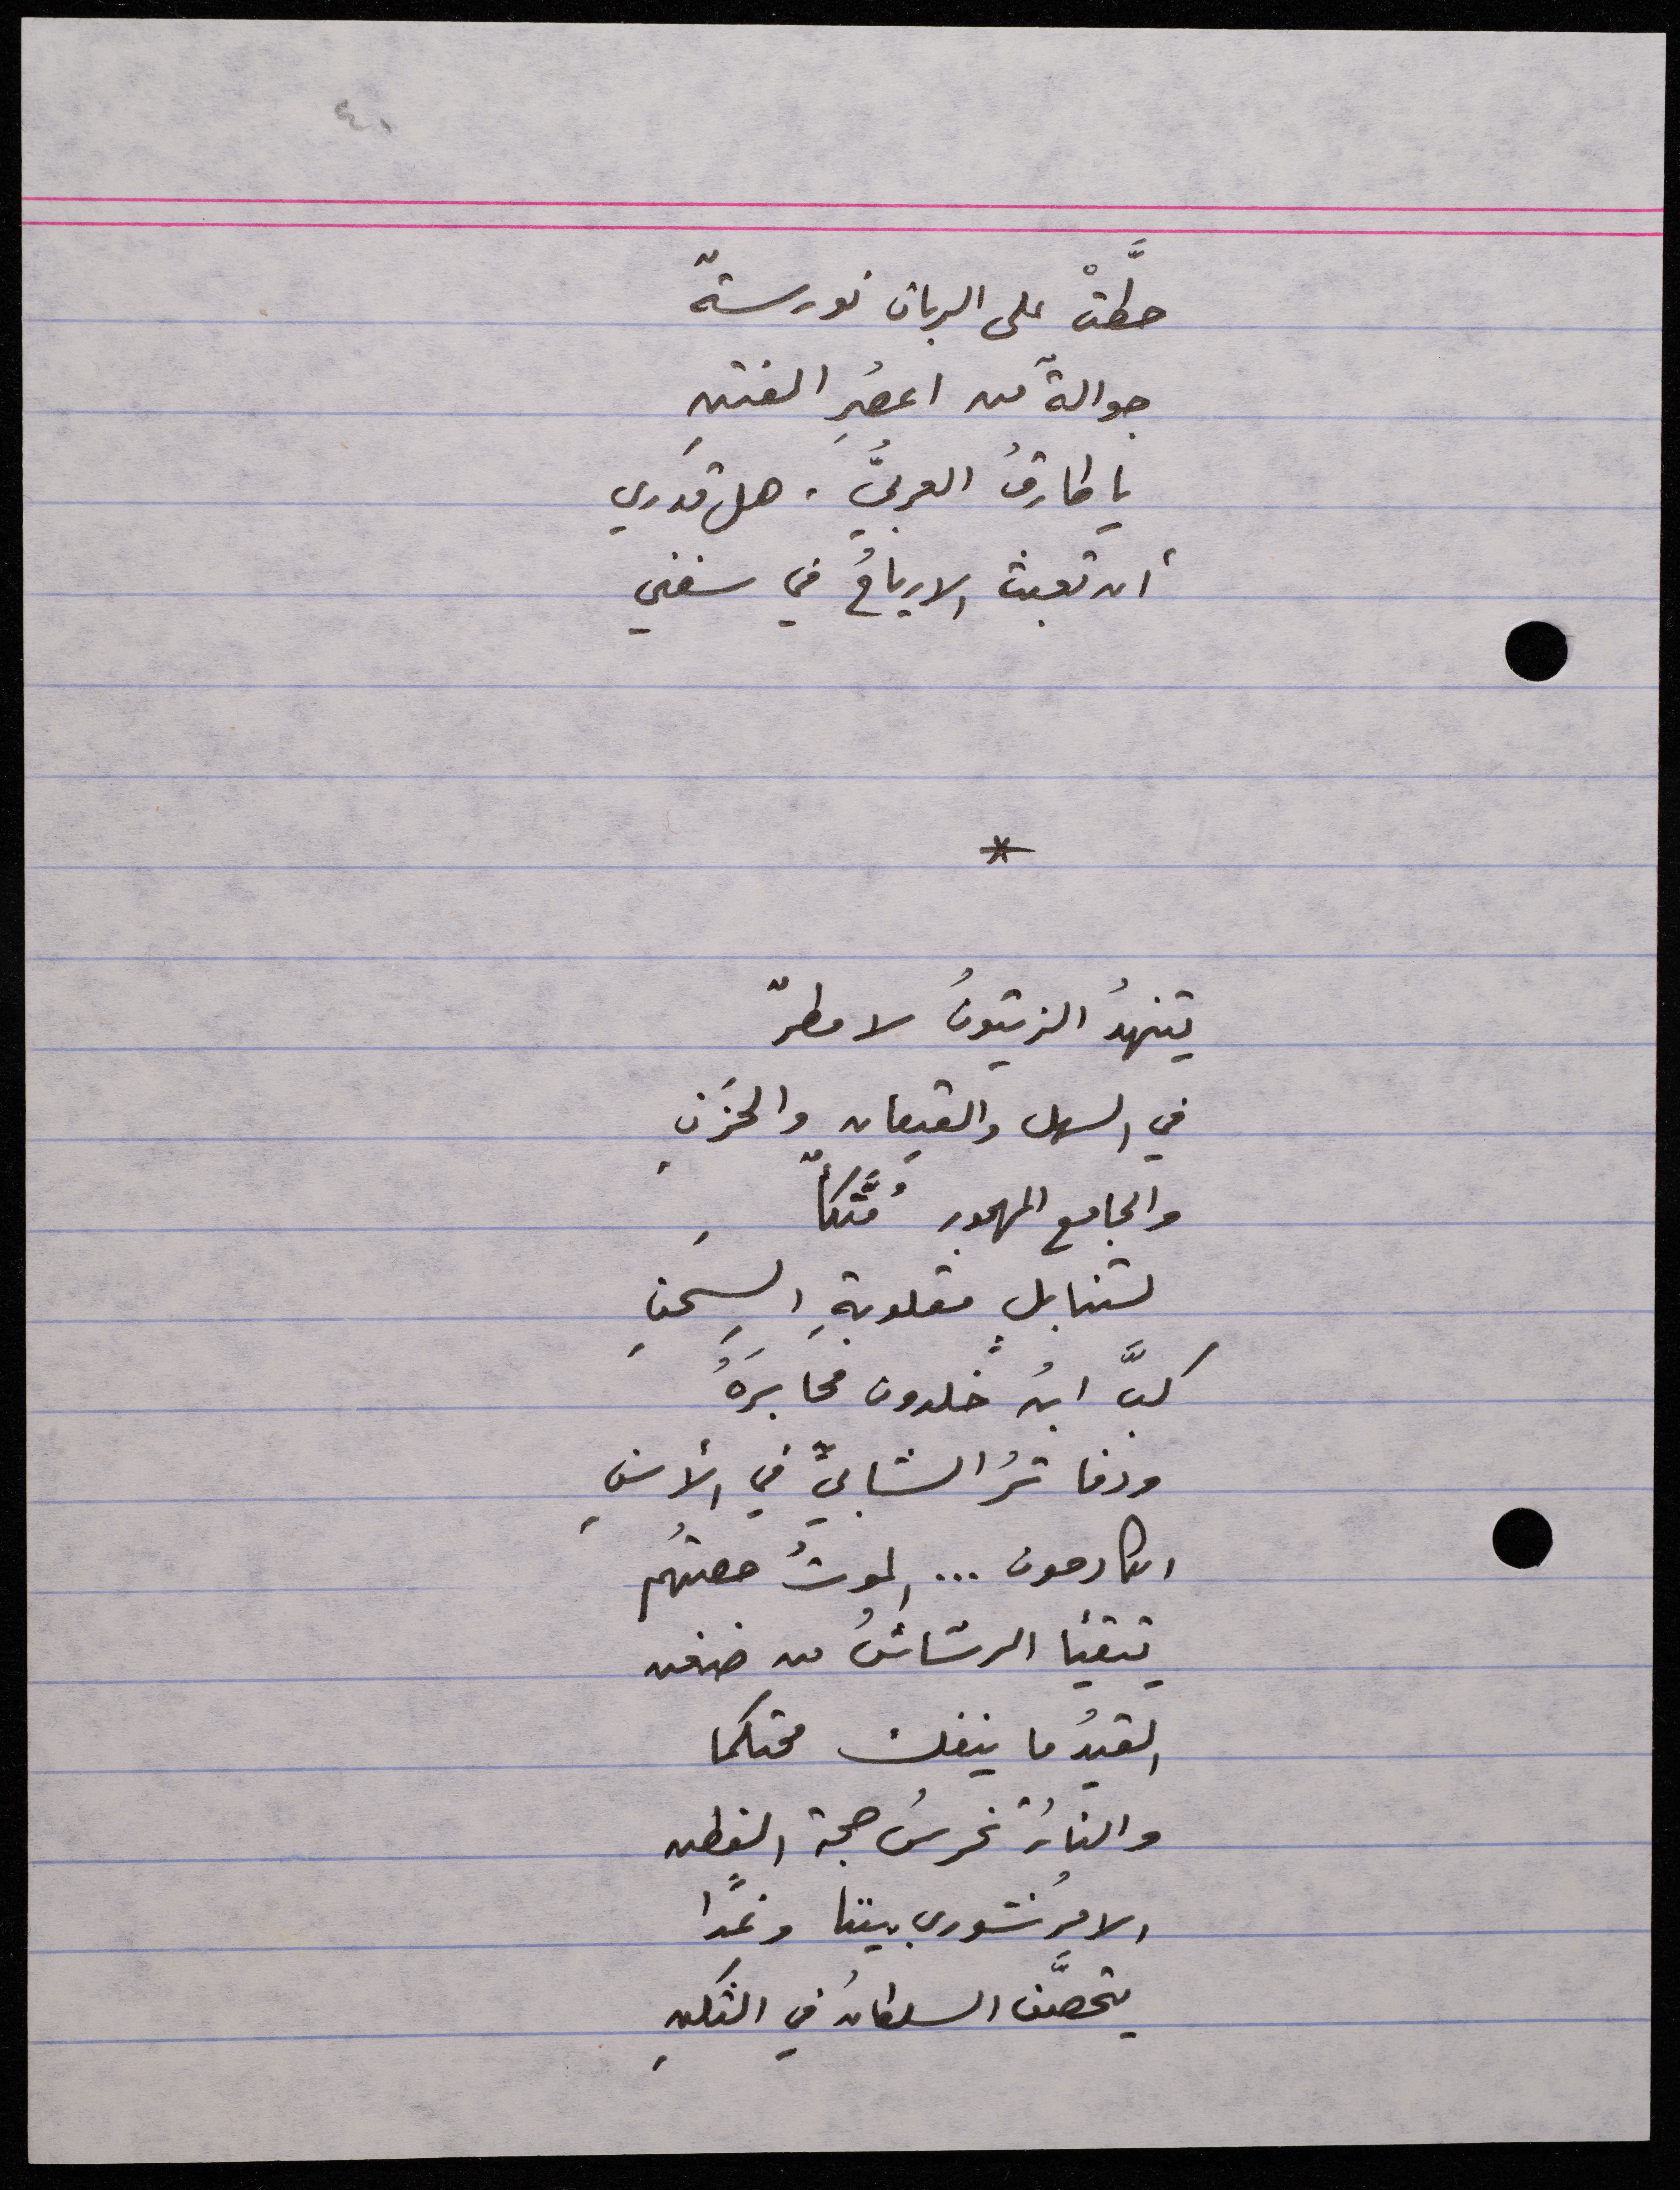 ٤٠
حطَّتْ على الربان نورسةٌ
جوالةٌ من اعصُرِ الفتنِ
يا طارقُ العربيُّ . هل قدَري
أن تعبث الارياحُ في سفني
*
يتنهدُ الزيتونُ لا مطرٌ
في السهل والقيعان والحَزَنِ
والجامع المهجور مُتَّكأٌ
لتنابلٍ مقلوبةِ السِحنِ
كبَّ ابنُ خلدون محابرَهُ
ودفاترُ الشابيِّ في الأسنِ
الكادحون ... الموتُ حصتُهم
يتقيأ الرشّاشُ من ضغن
القيدُ ما ينفك محتكما
والنارُ تخرسُ حجة الفطن
الامرُ شوري بيننا وغدًا
يتحصَّن السلطانُ في الثكنِ